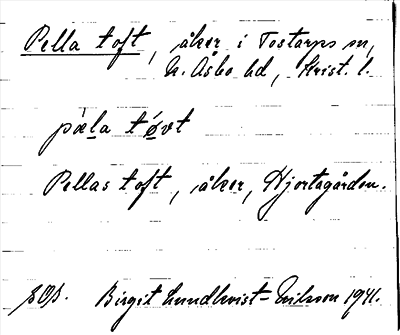 Pella toft, åker i Tostarps sn,
N. Åsbo hd, Krist. l.
pæ̀la tǿvt
Pellas toft, åker, Hjortagården.
Birgit Lundkvist-Nilsson 1941.